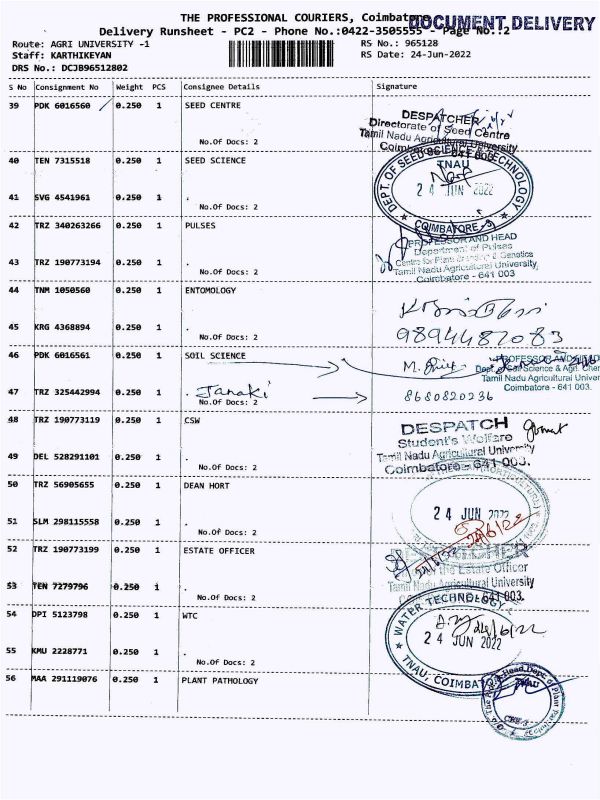 THE PROFESSIONAL COURIERS, Coimbatore
DOCUMENT DELIVERY
Delivery Runsheet - PC2 - Phone No.:0422-3505555 - Page No.:2
Route: AGRI UNIVERSITY -1
RS No.: 965128
Staff: KARTHIKEYAN
RS Date: 24-Jun-2022
DRS No.: DCJB96512802
S No Consignment No Weight PCS Consignee Details Signature
39 PDK 6016560 0.250 1 SEED CENTRE
DESPATCHER
Directorate of Seed Centre
Tamil Nadu Agricultural University
Coimbatore - 641 003.
No.Of Docs: 2
40 TEN 7315518 0.250 1 SEED SCIENCE
DEPT. OF SEED SCIENCE & TECHNOLOGY
TNAU
24 JUN 2022
COIMBATORE-3
41 SVG 4541961 0.250 1 .
No.Of Docs: 2
42 TRZ 340263266 0.250 1 PULSES
PROFESSOR AND HEAD
Department of Pulses
Centre for Plant Breeding & Genetics
Tamil Nadu Agricultural University,
Coimbatore - 641 003
43 TRZ 190773194 0.250 1 .
No.Of Docs: 2
44 TNM 1050560 0.250 1 ENTOMOLOGY
45 KRG 4368894 0.250 1 .
9894487083
No.Of Docs: 2
46 PDK 6016561 0.250 1 SOIL SCIENCE
PROFESSOR AND HEAD
Dept. of Soil Science & Agri. Chem
Tamil Nadu Agricultural Univer
Coimbatore - 641 003.
47 TRZ 325442994 0.250 1 . Janaki
8680820236
No.Of Docs: 2
48 TRZ 190773119 0.250 1 CSW
DESPATCH
Student's Welfare
Tamil Nadu Agricultural University
Coimbatore - 641-003.
49 DEL 528291101 0.250 1 .
No.Of Docs: 2
50 TRZ 56905655 0.250 1 DEAN HORT
24 JUN 2022
51 SLM 298115558 0.250 1 .
24/6/22
No.Of Docs: 2
52 TRZ 190773199 0.250 1 ESTATE OFFICER
DESPATCHER
the Estate Officer
Tamil Nadu Agricultural University
641 003.
53 TEN 7279796 0.250 1 .
No.Of Docs: 2
54 DPI 5123798 0.250 1 WTC
WATER TECHNOLOGY
24/6/22
24 JUN 2022
TNAU, COIMBATORE
55 KMU 2228771 0.250 1 .
No.Of Docs: 2
56 MAA 291119076 0.250 1 PLANT PATHOLOGY
TNAU
CBE-3